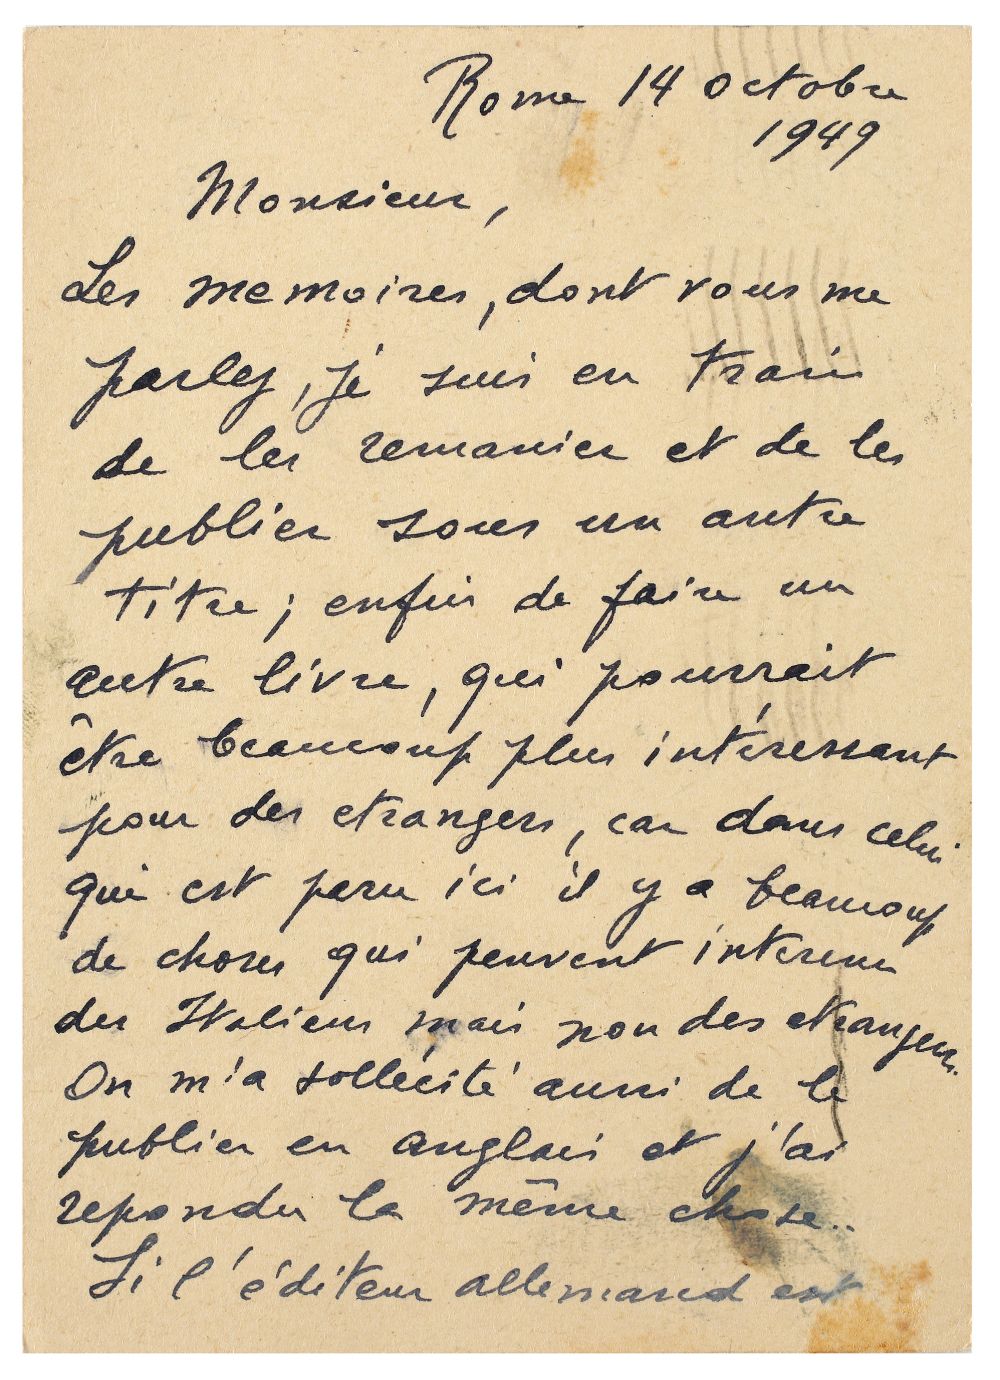 Rome 14 octobre
1949
Monsieur,
Les memoires, dont vous me
parlez, je suis en train
de les remanier et de les
publier sous un autre
titre; enfin de faire un
autre livre, qui pourrait
être beaucoup plus intéressant
pour des etrangers, car dans celui
qui est paru ici il y a beaucoup
de choses qui peuvent interesser
des Italiens mais non des etrangers.
On m'a sollécité aussi de le
publier en anglais et j'ai
repondu la même chose..
Si l'éditeur allemand est